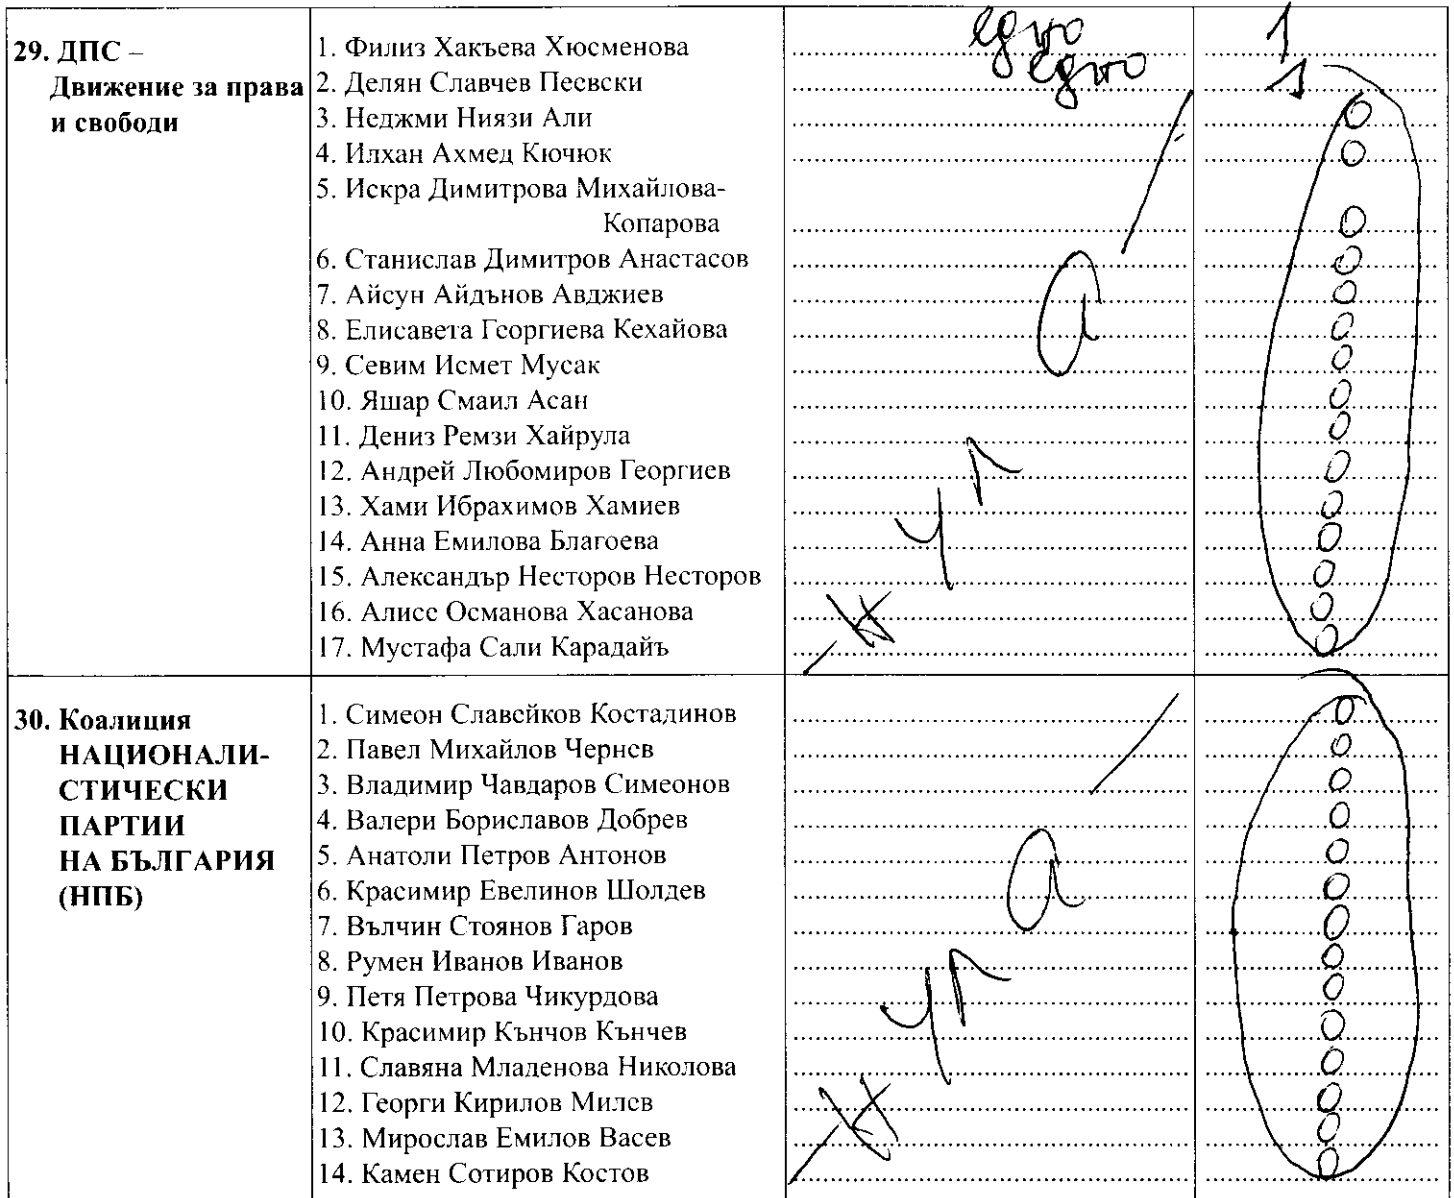 29. ДПС –
Движение за права
и свободи
1. Филиз Хакъева Хюсменова
едно
1
2. Делян Славчев Пеевски
едно
1
3. Неджми Ниязи Али
0
4. Илхан Ахмед Кючюк
0
5. Искра Димитрова Михайлова-
Копарова
0
6. Станислав Димитров Анастасов
0
7. Айсун Айдънов Авджиев
0
8. Елисавета Георгиева Кехайова
0
9. Севим Исмет Мусак
0
10. Яшар Смаил Асан
0
11. Дениз Ремзи Хайрула
0
12. Андрей Любомиров Георгиев
0
13. Хами Ибрахимов Хамиев
0
14. Анна Емилова Благоева
0
15. Александър Несторов Несторов
0
16. Алисе Османова Хасанова
0
17. Мустафа Сали Карадайъ
0
нула
30. Коалиция
НАЦИОНАЛИ-
СТИЧЕСКИ
ПАРТИИ
НА БЪЛГАРИЯ
(НПБ)
1. Симеон Славейков Костадинов
0
2. Павел Михайлов Чернев
0
3. Владимир Чавдаров Симеонов
0
4. Валери Бориславов Добрев
0
5. Анатоли Петров Антонов
0
6. Красимир Евелинов Шолдев
0
7. Вълчин Стоянов Гаров
0
8. Румен Иванов Иванов
0
9. Петя Петрова Чикурдова
0
10. Красимир Кънчов Кънчев
0
11. Славяна Младенова Николова
0
12. Георги Кирилов Милев
0
13. Мирослав Емилов Васев
0
14. Камен Сотиров Костов
0
нула